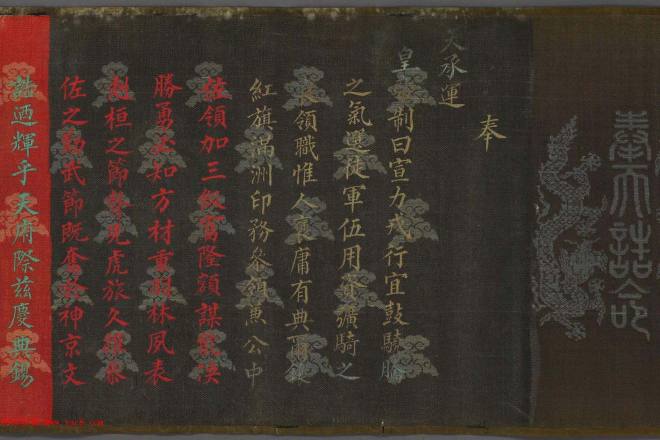 奉天誥命
奉
天承運
皇制曰宣力戎行宜鼓驍騰
之氣選徒軍伍用彍騎之
領職惟人褒庸有典爾鑲
紅旗滿洲印務參領兼公中
佐領加三級富隆額謀
勝勇必知方材重羽林夙表
桓之節虎旅久
佐之勤武節既奮於神京文
誥迺輝乎天府際茲慶典錫